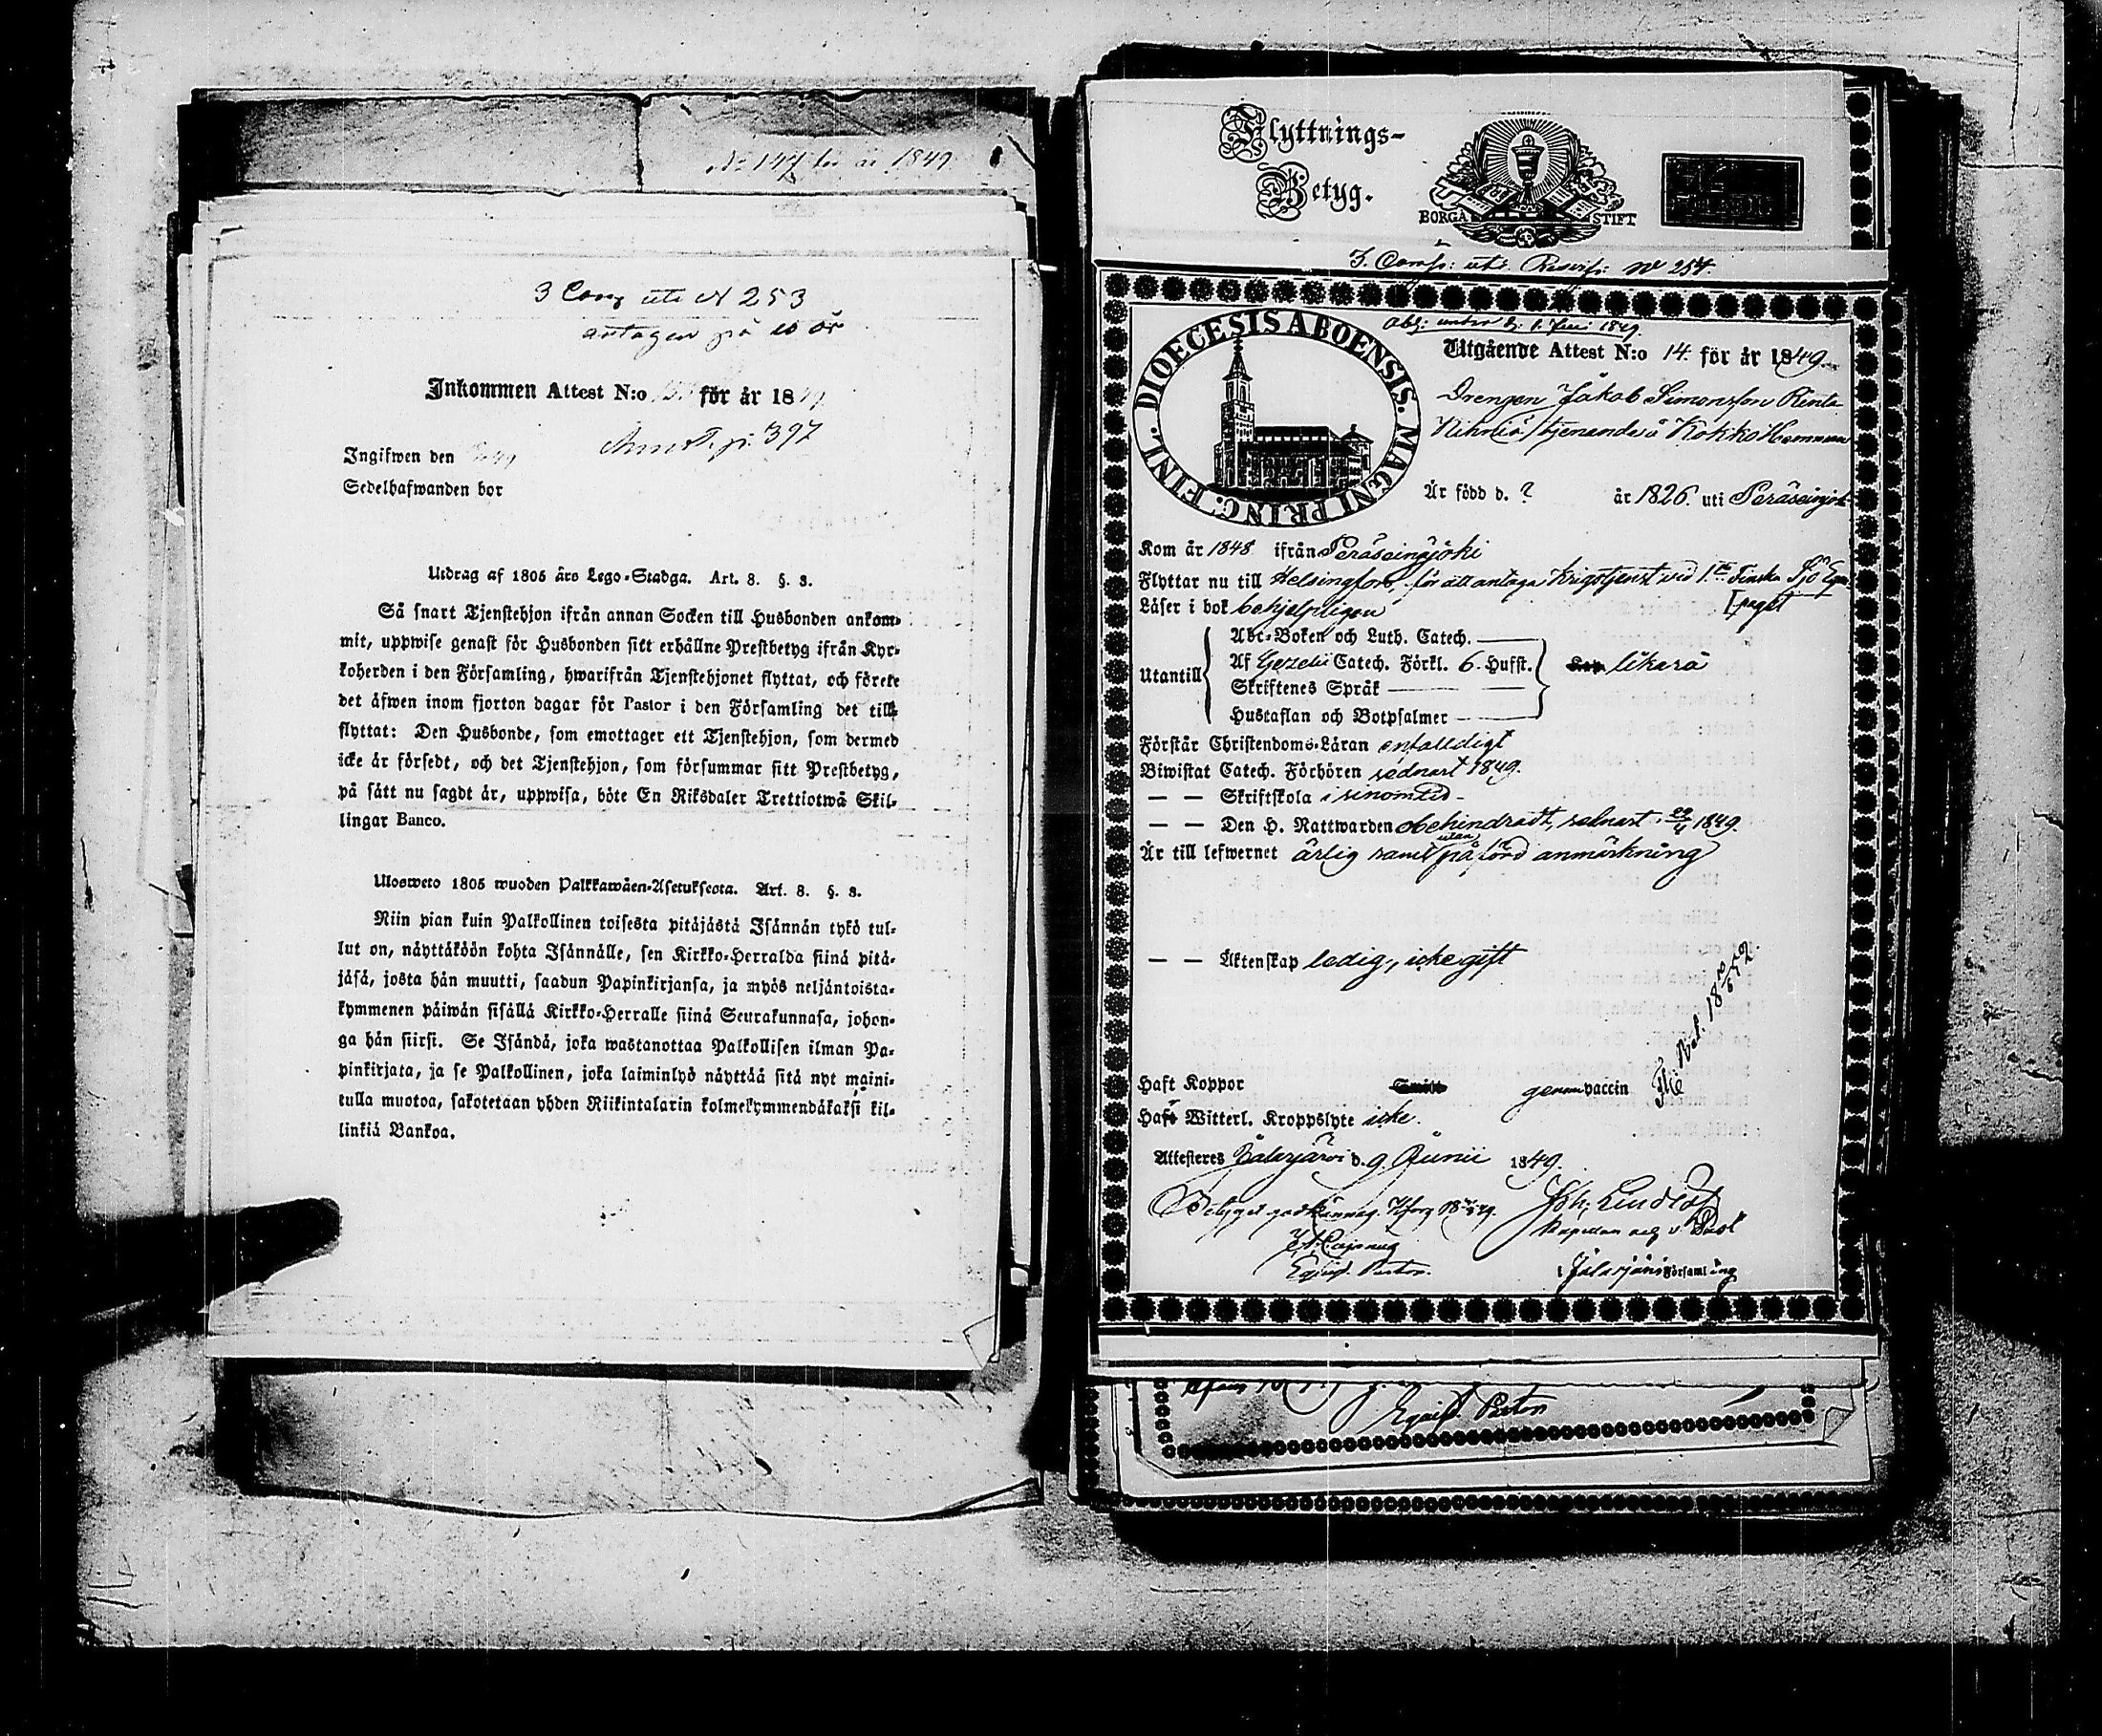 No 147 för år 1849
3 Comp ute N 253
antagen på 10 år
Inkommen Attest N:o för år 18
Ann. T. p: 397
Ingifwen den
Sedelhafwanden bor
Utdrag af 1805 års Lego-Stadga. Art. 8. §. 3.
Så snart Tjenstehjon ifrån annan Socken till Husbonden ankom-
mit, uppwise genast för Husbonden sitt erhållne Prestbetyg ifrån Kyr-
koherden i den Församling, hwarifrån Tjenstehjonet flyttat, och förete
det äfwen inom fjorton dagar för Pastor i den Församling det till-
flyttat: Den Husbonde, som emottager ett Tjenstehjon, som dermed
icke är försedt, och det Tjenstehjon, som försummar sitt Prestbetyg,
på sätt nu sagdt är, uppwisa, böte En Riksdaler Trettiotwå Skil-
lingar Banco.
Ulosweto 1805 wuoden Palkkawäen-Asetuksesta. Art. 8. §. 3.
Niin pian kuin Palkollinen toisesta pitäjästä Isännän tykö tul-
lut on, näyttäköön kohta Isännälle, sen Kirkko-Herralda siinä pitä-
jäsä, josta hän muutti, saadun Papinkirjansa, ja myös neljäntoista-
kymmenen päiwän sisällä Kirkko-Herralle siinä Seurakunnasa, johon-
ga hän siirsi. Se Isändä, joka wastanottaa Palkollisen ilman Pa-
pinkirjata, ja se Palkollinen, joka laiminlyö näyttää sitä nyt maini-
tulla muotoa, sakotetaan yhden Riikintalarin kolmekymmendäkaksi kil-
linkiä Bankoa.
Flyttnings-
Betyg.
BORGÅ STIFT
3. Comp: utd. Reserv: No 254.
DIOECESIS ABOENSIS. MAGNI PRINC. FINL.
Utgående Attest N:o 14. för år 1849.
Drengen Jakob Simonsson Rinta
tjenande å Kokko Hemman
Är född d. ? år 1826. uti Peräseinjoki
Kom år 1848 ifrån Peräseinäjoki
Flyttar nu till Helsingfors, för att antaga krigstjenst vid 1:sta Finska Sjö Equi
[paget
Läser i bok behjelpligen
Abc-Boken och Luth. Catech.
Utantill Af Gezelii Catech. Förkl. 6. Hufst. likaså
Skriftenes Språk
Hustaflan och Botpsalmer
Förstår Christendoms-Läran enfalldigt
Biwistat Catech. Förhören sednast 1849.
— — Skriftskola i sinom tid
— — Den H. Nattwarden obehindradt, sednast 22/4 1849.
Är till lefwernet ärlig samt utan påförd anmärkning
— — Äktenskap ledig, icke gift
Haft Koppor genom vaccin
Haft Witterl. Kroppslyte icke.
Attesteres Jalasjärvi d. 9 Junii 1849.
Betyget godkännes. Hfors
Joh: Lindstedt
Kapellan och v. Past
Eqvip. Pastor.
i Jalasjärvi Församling
Eqvip. Pastor